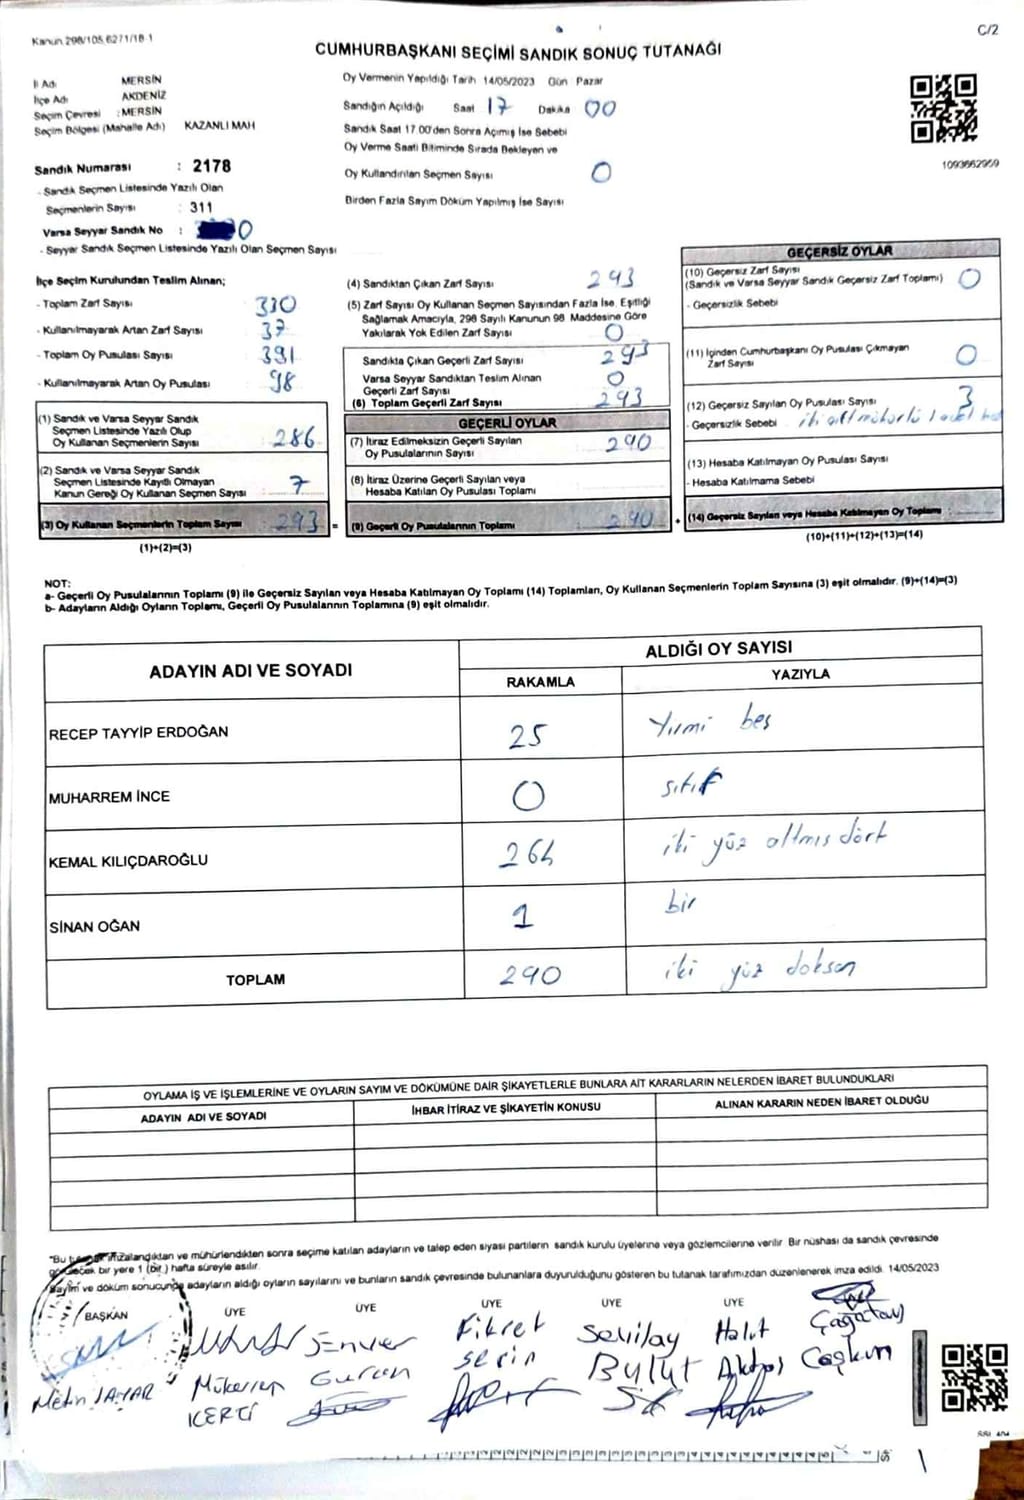 Kanun 298/105,6271/18-1
C/2
CUMHURBAŞKANI SEÇİMİ SANDIK SONUÇ TUTANAĞI
İl Adı MERSİN
İlçe Adı AKDENİZ
Seçim Çevresi : MERSİN
Seçim Bölgesi (Mahalle Adı) KAZANLI MAH
Sandık Numarası : 2178
- Sandık Seçmen Listesinde Yazılı Olan
Seçmenlerin Sayısı : 311
Varsa Seyyar Sandık No : 0
- Seyyar Sandık Seçmen Listesinde Yazılı Olan Seçmen Sayısı
Oy Vermenin Yapıldığı Tarih 14/05/2023 Gün Pazar
Sandığın Açıldığı Saat 17 Dakika 00
Sandık Saat 17.00'den Sonra Açımış İse Sebebi
Oy Verme Saati Bitiminde Sırada Bekleyen ve
Oy Kullandırılan Seçmen Sayısı 0
Birden Fazla Sayım Döküm Yapılmış İse Sayısı
1093662959
İlçe Seçim Kurulundan Teslim Alınan;
- Toplam Zarf Sayısı 330
- Kullanılmayarak Artan Zarf Sayısı 37
- Toplam Oy Pusulası Sayısı 391
- Kullanılmayarak Artan Oy Pusulası 98
(1) Sandık ve Varsa Seyyar Sandık
Seçmen Listesinde Yazılı Olup
Oy Kullanan Seçmenlerin Sayısı 286
(2) Sandık ve Varsa Seyyar Sandık
Seçmen Listesinde Kayıtlı Olmayan
Kanun Gereği Oy Kullanan Seçmen Sayısı 7
(3) Oy Kullanan Seçmenlerin Toplam Sayısı 293 =
(1)+(2)=(3)
(4) Sandıktan Çıkan Zarf Sayısı 293
(5) Zarf Sayısı Oy Kullanan Seçmen Sayısından Fazla İse, Eşitliği
Sağlamak Amacıyla, 298 Sayılı Kanunun 98. Maddesine Göre
Yakılarak Yok Edilen Zarf Sayısı 0
Sandıkta Çıkan Geçerli Zarf Sayısı 293
Varsa Seyyar Sandıktan Teslim Alınan
Geçerli Zarf Sayısı 0
(6) Toplam Geçerli Zarf Sayısı 293
GEÇERLİ OYLAR
(7) İtiraz Edilmeksizin Geçerli Sayılan
Oy Pusulalarının Sayısı 290
(8) İtiraz Üzerine Geçerli Sayılan veya
Hesaba Katılan Oy Pusulası Toplamı
(9) Geçerli Oy Pusulalarının Toplamı 290 +
GEÇERSİZ OYLAR
(10) Geçersiz Zarf Sayısı
(Sandık ve Varsa Seyyar Sandık Geçersiz Zarf Toplamı) 0
- Geçersizlik Sebebi
(11) İçinden Cumhurbaşkanı Oy Pusulası Çıkmayan
Zarf Sayısı 0
(12) Geçersiz Sayılan Oy Pusulası Sayısı 3
- Geçersizlik Sebebi iki mühürlü 1 adet
(13) Hesaba Katılmayan Oy Pusulası Sayısı
- Hesaba Katılmama Sebebi
(14) Geçersiz Sayılan veya Hesaba Katılmayan Oy Toplamı
(10)+(11)+(12)+(13)=(14)
NOT:
a- Geçerli Oy Pusulalarının Toplamı (9) ile Geçersiz Sayılan veya Hesaba Katılmayan Oy Toplamı (14) Toplamları, Oy Kullanan Seçmenlerin Toplam Sayısına (3) eşit olmalıdır. (9)+(14)=(3)
b- Adayların Aldığı Oyların Toplamı, Geçerli Oy Pusulalarının Toplamına (9) eşit olmalıdır.
ADAYIN ADI VE SOYADI ALDIĞI OY SAYISI
RAKAMLA YAZIYLA
RECEP TAYYİP ERDOĞAN 25 Yirmi beş
MUHARREM İNCE 0 sıfır
KEMAL KILIÇDAROĞLU 264 iki yüz altmış dört
SİNAN OĞAN 1 bir
TOPLAM 290 iki yüz doksan
OYLAMA İŞ VE İŞLEMLERİNE VE OYLARIN SAYIM VE DÖKÜMÜNE DAİR ŞİKAYETLERLE BUNLARA AİT KARARLARIN NELERDEN İBARET BULUNDUKLARI
ADAYIN ADI VE SOYADI İHBAR İTİRAZ VE ŞİKAYETİN KONUSU ALINAN KARARIN NEDEN İBARET OLDUĞU
"Bu imzalandıktan ve mühürlendikten sonra seçime katılan adayların ve talep eden siyasi partilerin sandık kurulu üyelerine veya gözlemcilerine verilir. Bir nüshası da sandık çevresinde
görülecek bir yere 1 (bir) hafta süreyle asılır.
Sayım ve döküm sonucunda adayların aldığı oyların sayılarını ve bunların sandık çevresinde bulunanlara duyurulduğunu gösteren bu tutanak tarafımızdan düzenlenerek imza edildi. 14/05/2023
BAŞKAN ÜYE ÜYE ÜYE ÜYE ÜYE
Metin Mükerrem İÇERTİ
Enver Gürcan
Fikret Serin
Sevilay Bulut
Halit Aktaş
Çağatay Coşkun